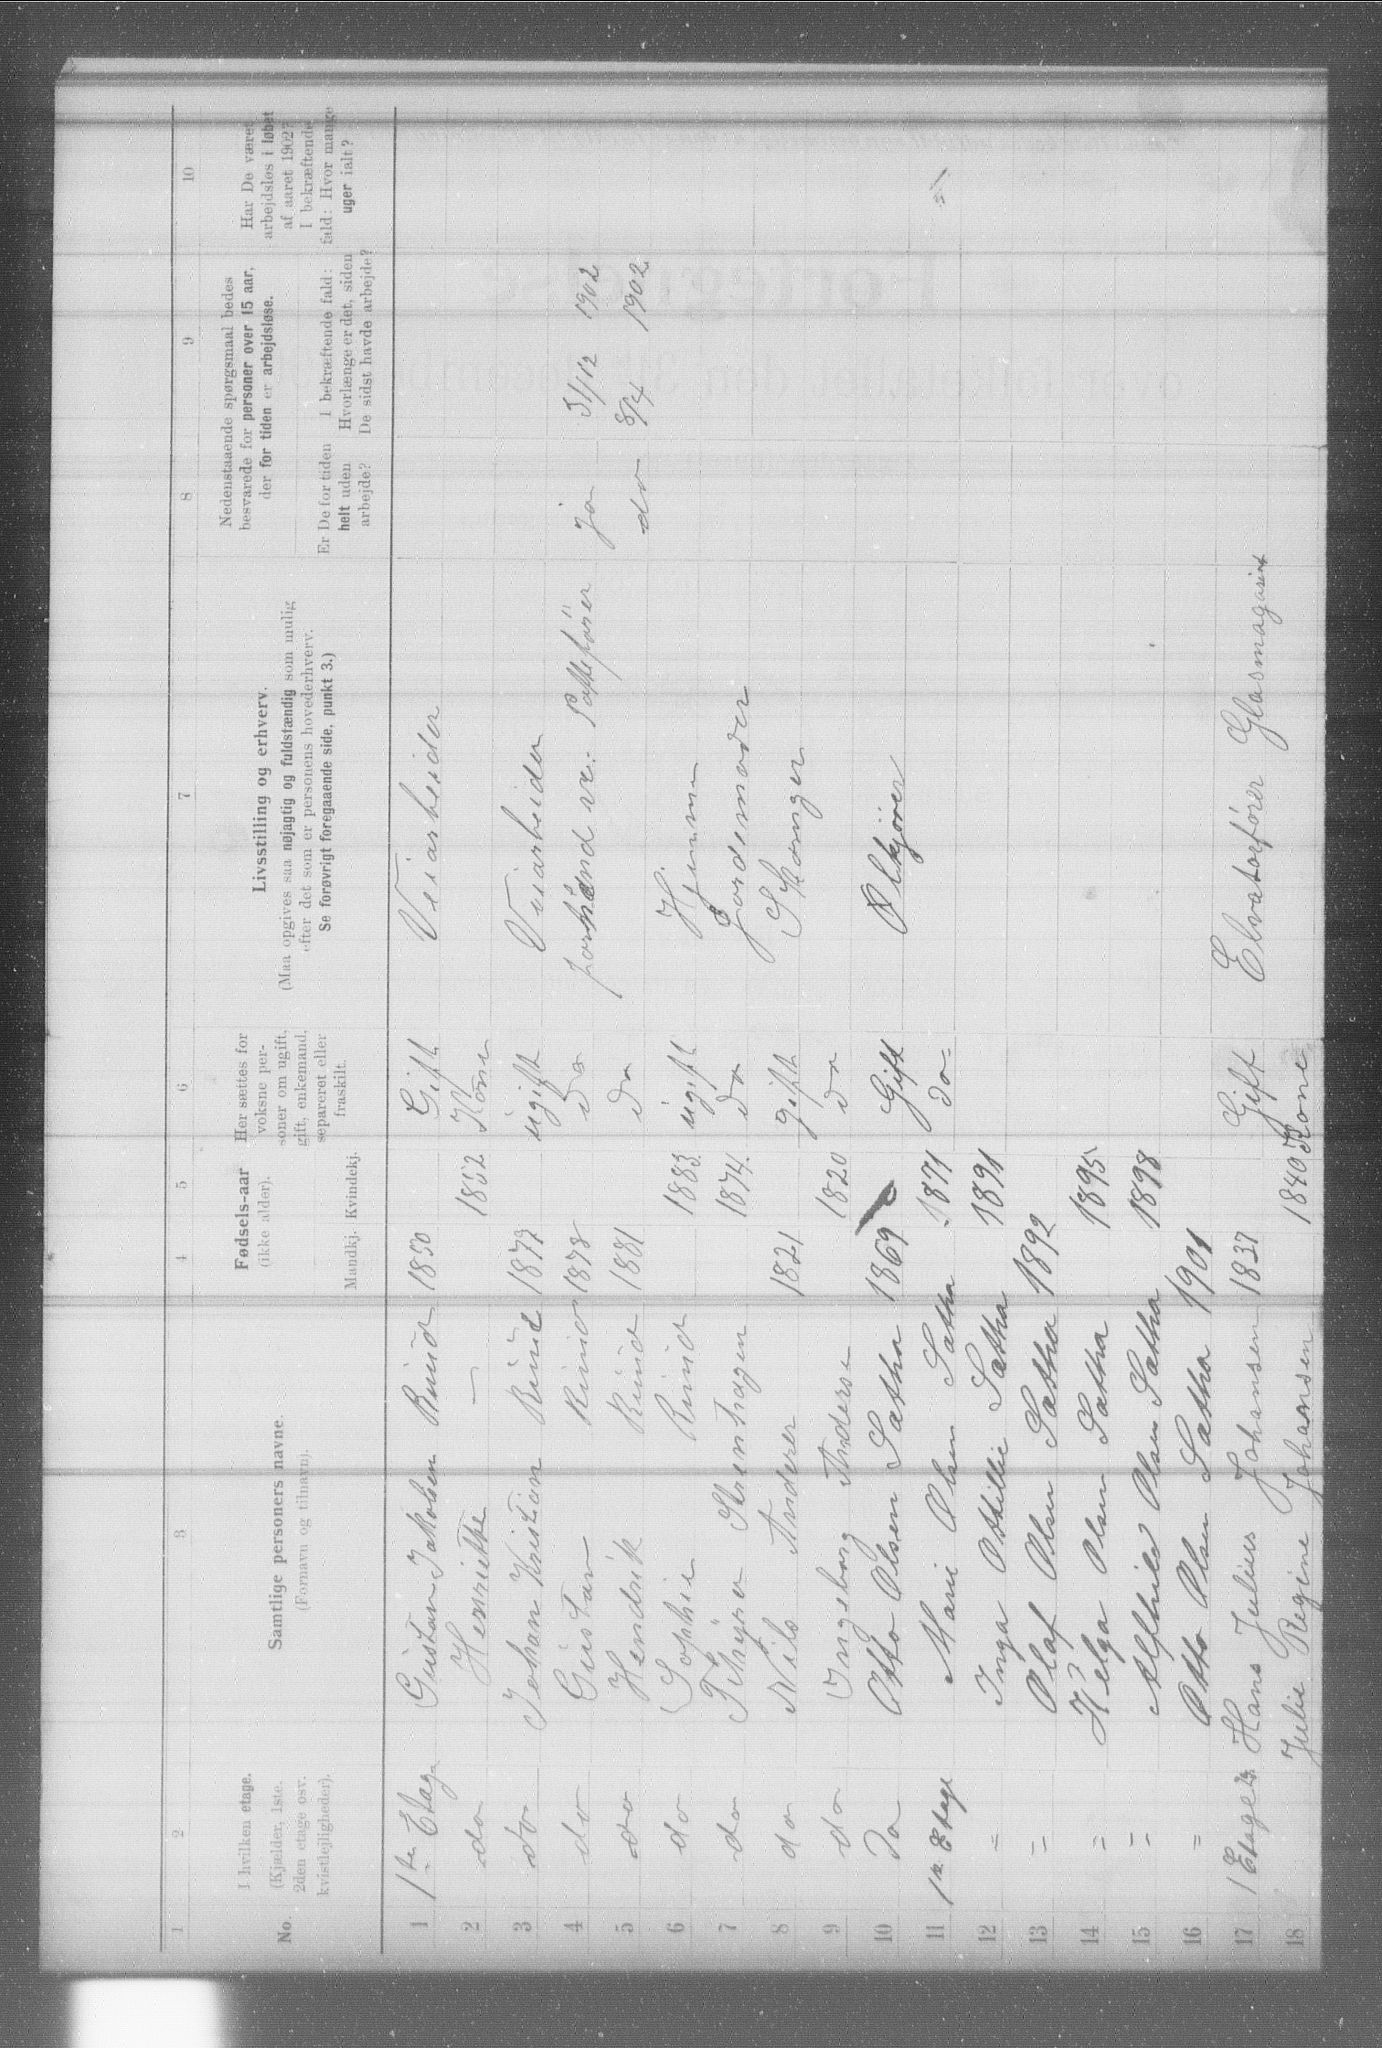 1 2 3 4 5 6 7 8 9 10
No.
I hvilken etage.
(Kjælder, 1ste.
2den etage osv.
kvistlejligheder).
Samtlige personers navne.
(Fornavn og tilnavn).
Fødsels-aar
(ikke alder).
Mandkj. Kvindekj.
Her sættes for
voksne per-
soner om ugift,
gift, enkemand,
separeret eller
fraskilt.
Livsstilling og erhverv.
(Maa opgives saa nøjagtig og fuldstændig som mulig
efter det som er personens hovederhverv.
Se forøvrigt foregaaende side, punkt 3.)
Nedenstaaende spørgsmaal bedes
besvarede for personer over 15 aar,
der for tiden er arbejdsløse.
Er De for tiden
helt uden
arbejde?
I bekræftende fald:
Hvorlænge er det, siden
De sidst havde arbejde?
Har De været
arbejdsløs i løbet
af aaret 1902?
I bekræftende
fald: Hvor mange
uger ialt?
1 1ste Etage Gustav Jakobsen Rúud 1850 Gift Veiarbeider
2 do Henriette — 1852 Kone
3 do Johan Kristian 1877 ugift Veiarbeider
4 do Gustav 1878 do ja 31/12 1902
5 do Hendrik Rúud 1881 do do 8/4 1902
6 do Sophie Rúud 1883 ugift Hjemme
7 do Thýra 1874 do Jordemoder
8 do Nils Andersen 1821 gift
9 do Ingeborg Andersen 1820 do
10 do Otto Olsen Sætha 1869 Gift Ølkjører
11 1ste Etage Marie Olsen Sætha 1871 do
12 = Inga Ottillie Sætha 1891
13 = Olaf Olsen Sætha 1892
14 = Helga Olsen Sætha 1895
15 = Alfhild Olsen Sætha 1898
16 = Otto Olsen Sætha 1901
17 1 Etage Hans Julius Johansen 1837 Gift Elvatorfører Glasmagasinet
18 Julie Regine Johansen 1840 Kone